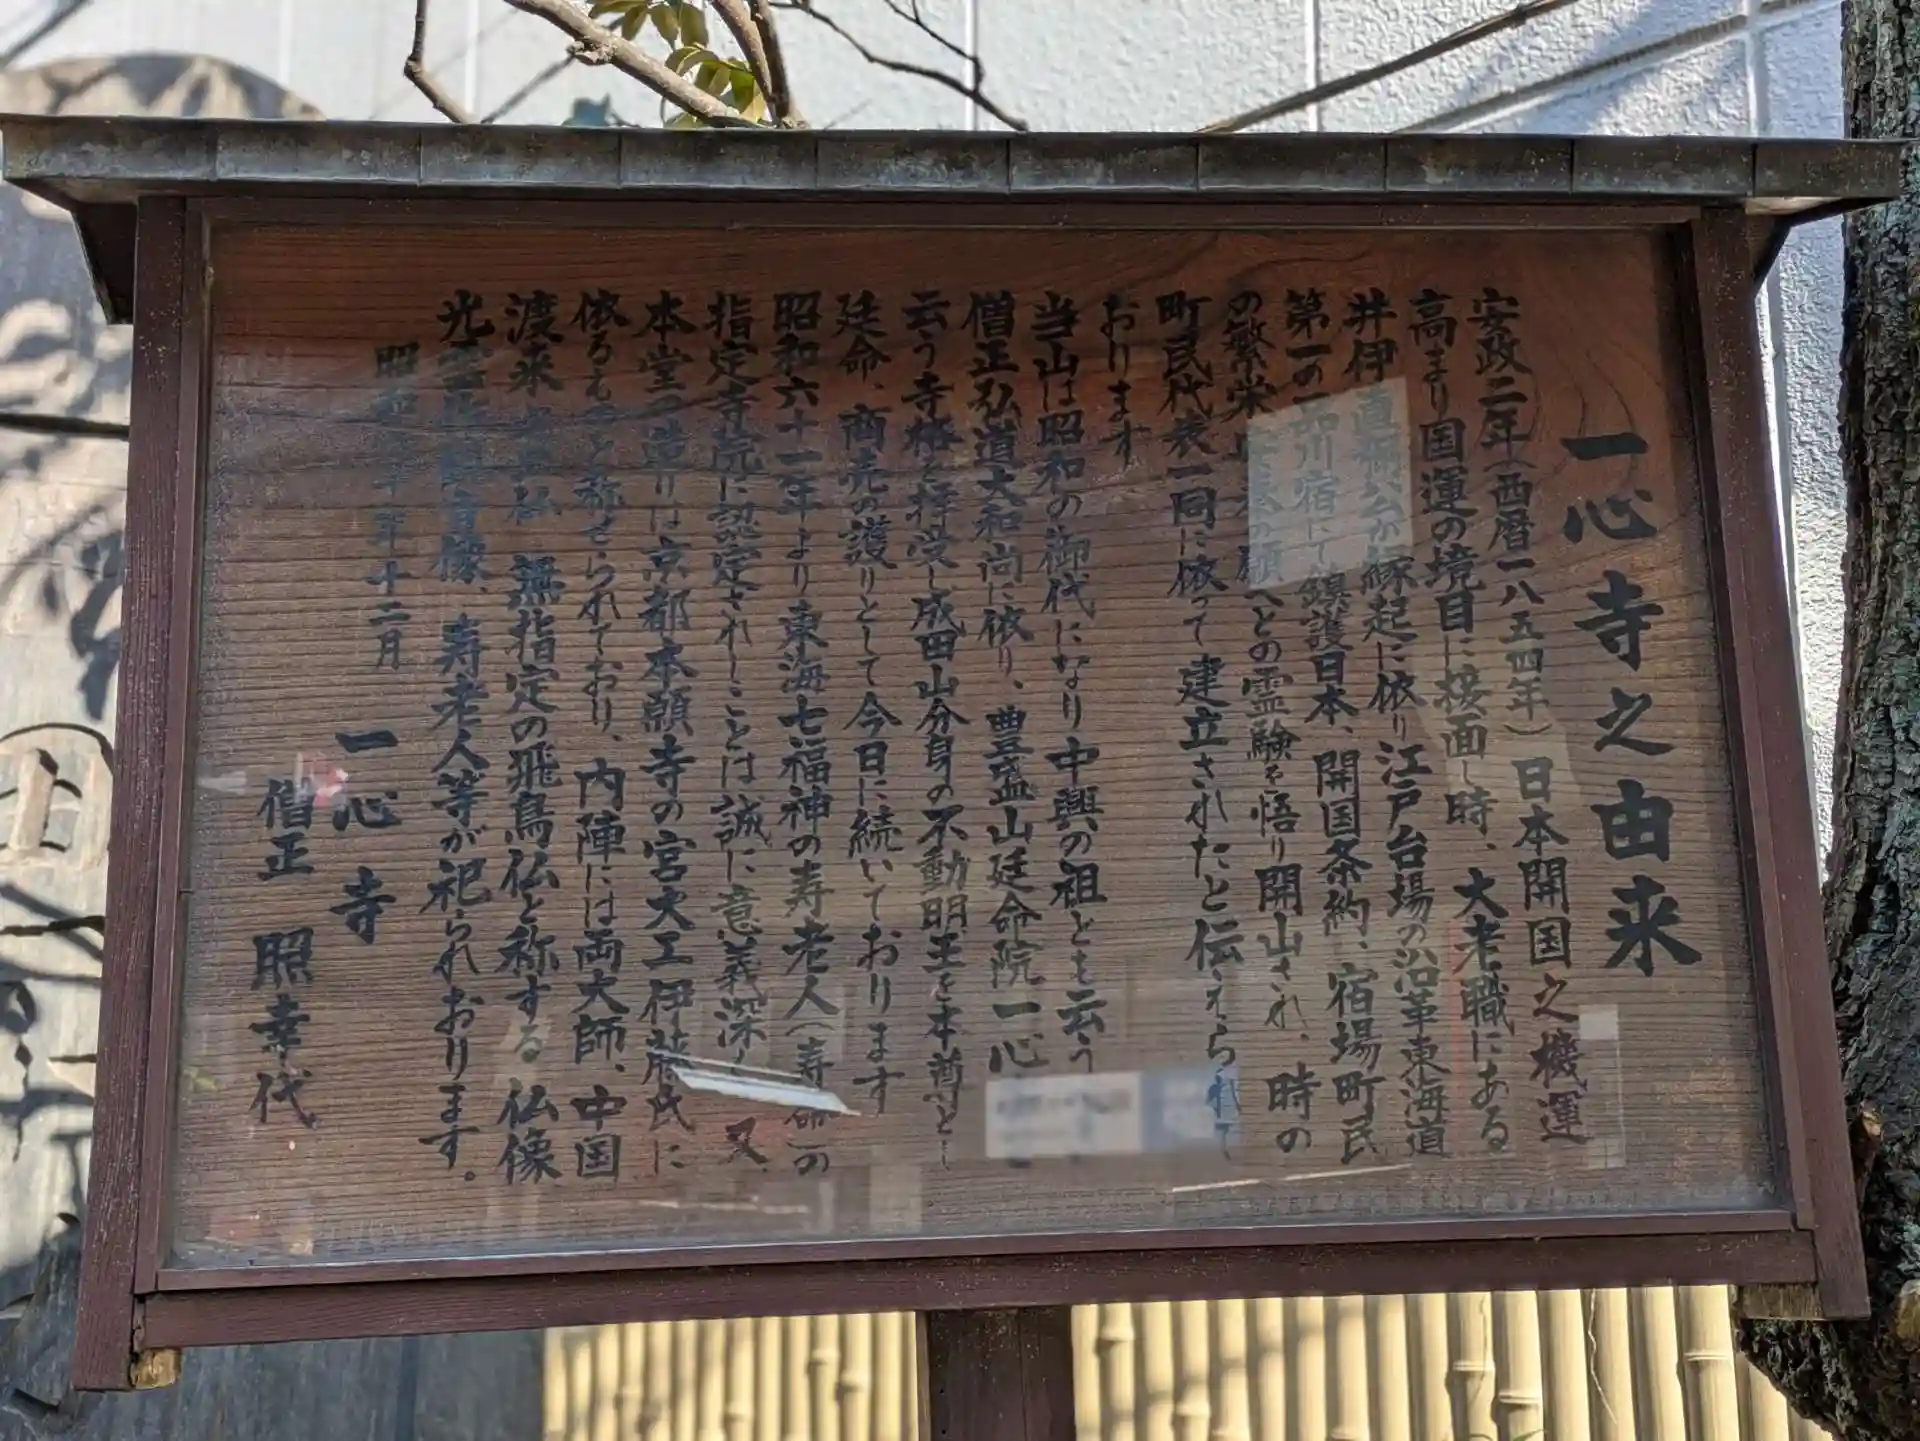 一心寺之由来
安政二年（西暦一八五四年）日本開国之機運
高まり国運の境目に接面し時、大老職にある
井伊直弼公が縁起に依り江戸台場の沿革東海道
第一の品川宿にて鎮護日本、開国条約、宿場町民
の繁栄 の願へとの霊験を悟り開山され、時の
町民代表一同に依って建立されたと伝えられて
おります
当山は昭和の御代になり中興の祖とも云う
僧正弘道大和尚に依り、豊盛山延命院一心
云う寺格を拝受し成田山分身の不動明王を本尊とし
延命、商売の護りとして今日に続いております
昭和六十一年より東海七福神の寿老人（寿命）の
指定寺院に認定されしことは誠に意義深く又、
本堂の造りは京都本願寺の宮大工伊藤氏に
依るものと称せられており、内陣には両大師、中国
渡来 仏 無指定の飛鳥仏と称する仏像
観音像、寿老人等が祀られおります。
昭和 年十二月
一心寺
僧正 照幸代